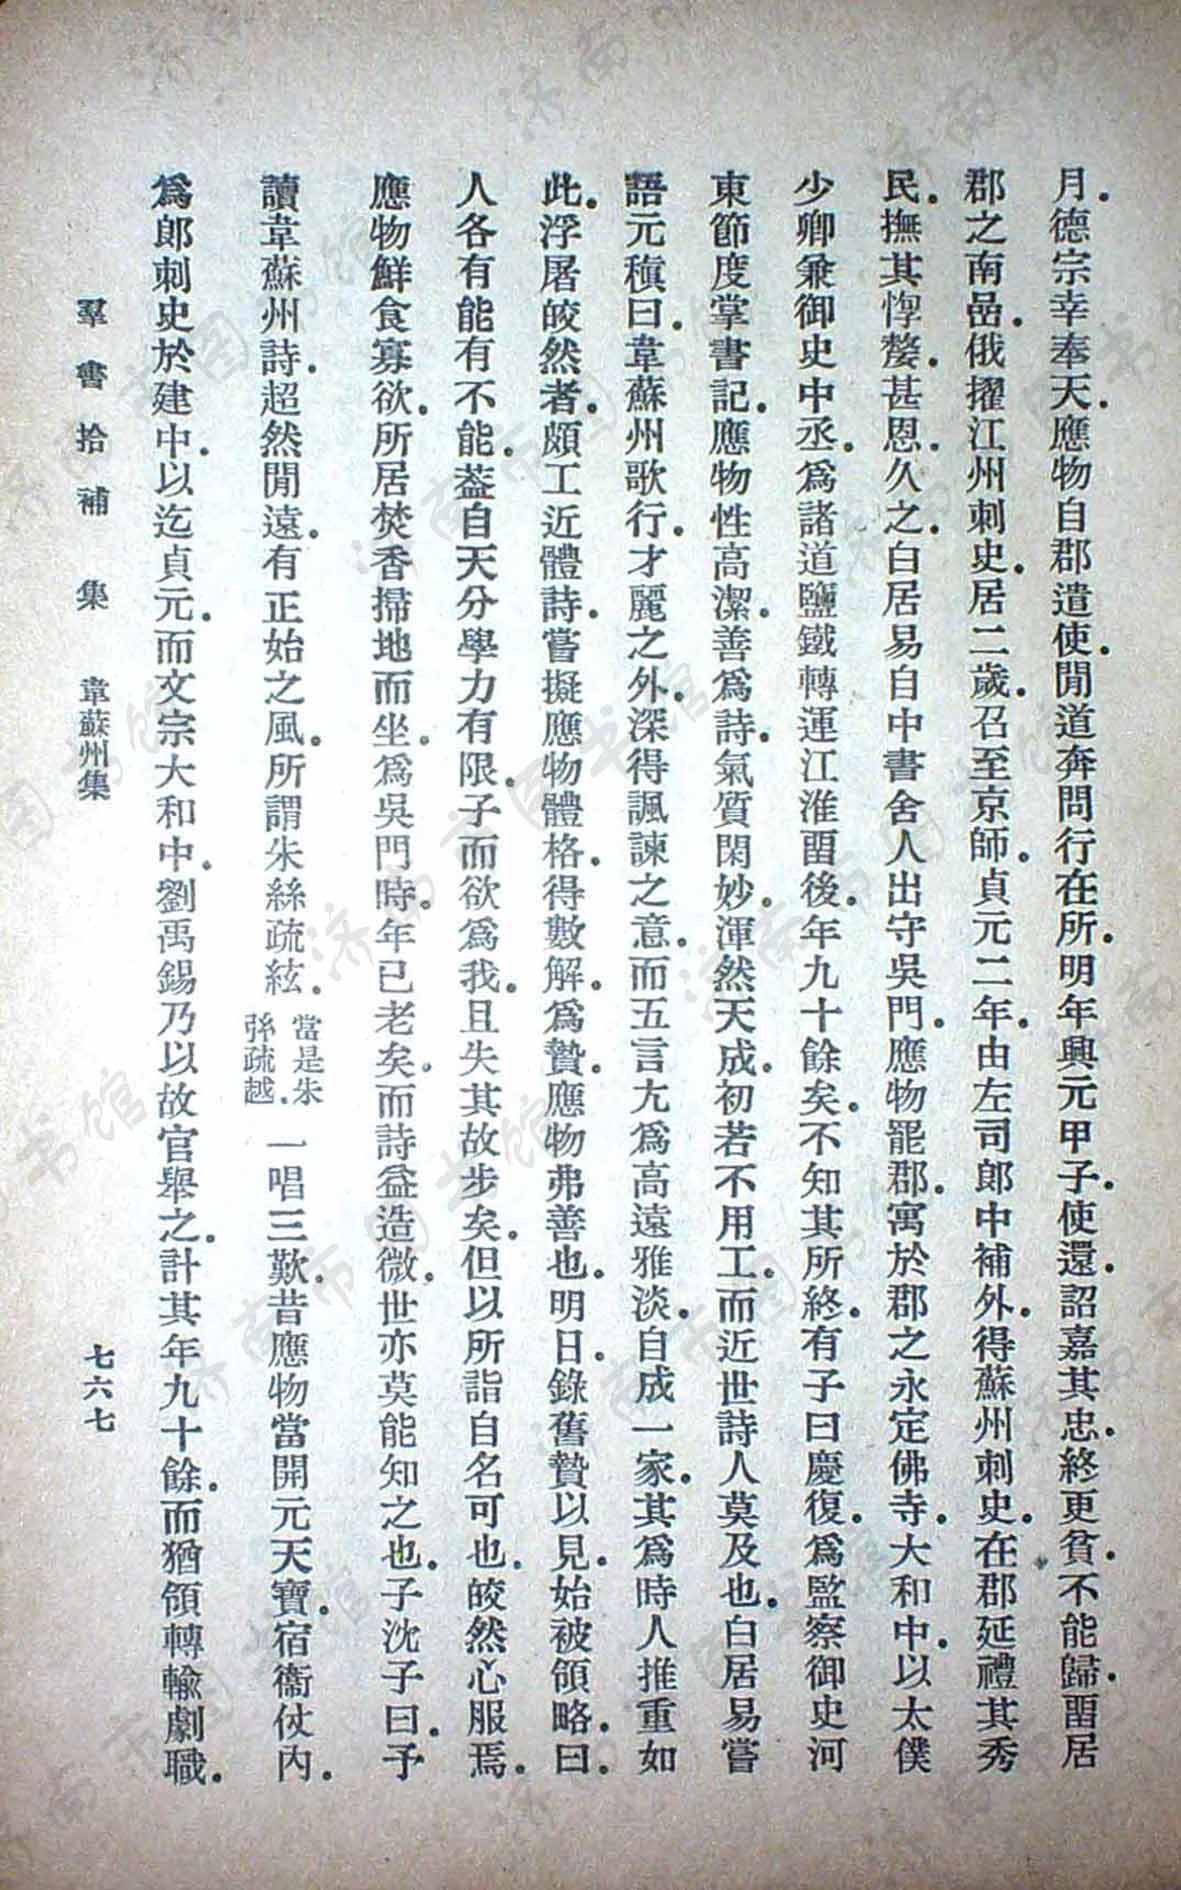 月。德宗幸奉天。應物自郡遣使。閒道奔問行在所。明年興元甲子。使還。詔嘉其忠。終更貧。不能歸。畱居
郡之南嵒。俄擢江州刺史。居二歲。召至京師。貞元二年。由左司郎中補外。得蘇州刺史。在郡延禮其秀
民。撫其惸嫠。甚恩。久之。白居易自中書舍人出守吳門。應物罷郡。寓於郡之永定佛寺。大和中。以太僕
少卿兼御史中丞。爲諸道鹽鐵轉運江淮畱後。年九十餘矣。不知其所終。有子曰慶復。爲監察御史河
東節度掌書記。應物性高潔。善爲詩。氣質閑妙。渾然天成。初若不用工。而近世詩人莫及也。白居易嘗
語元稹曰。韋蘇州歌行。才麗之外。深得諷諫之意。而五言尤爲高遠雅淡。自成一家。其爲時人推重如
此。浮屠皎然者。頗工近體詩。嘗擬應物體格。得數解。爲贄。應物弗善也。明日。錄舊贄以見。始被領略。曰。
人各有能有不能。葢自天分學力有限。子而欲爲我。且失其故步矣。但以所詣自名可也。皎然心服焉。
應物鮮食寡欲。所居焚香掃地而坐。爲吳門時。年已老矣。而詩益造微。世亦莫能知之也。子沈子曰。予
讀韋蘇州詩。超然閒遠。有正始之風。所謂朱絲疏絃。當是朱絃疏越。一唱三歎。昔應物當開元天寶。宿衞仗內。
爲郞刺史於建中。以迄貞元。而文宗大和中。劉禹錫乃以故官舉之。計其年九十餘。而猶領轉輸劇職。
羣書拾補 集 韋蘇州集 七六七